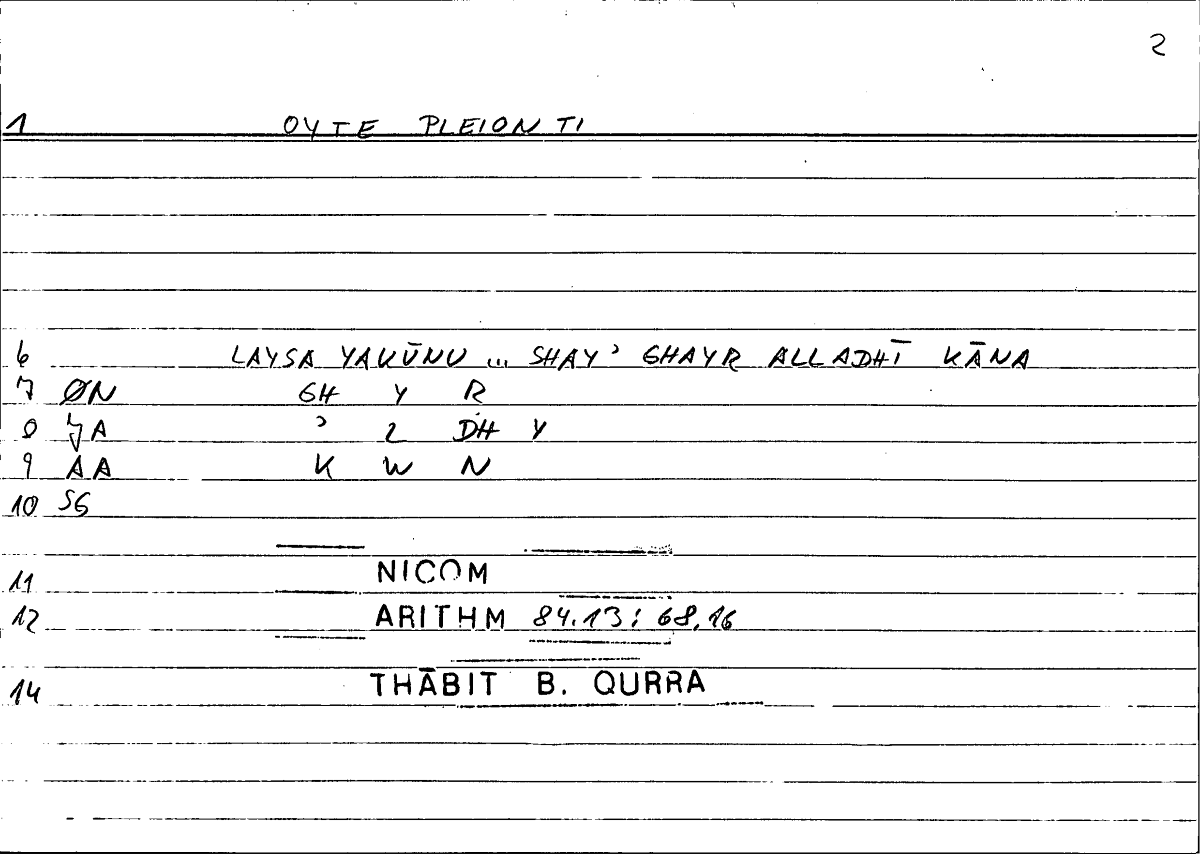 2
1 OYTE PLEION TI
6 LAYSA YAKŪNU ... SHAY' GHAYR ALLADHĪ KĀNA
7 ØN GH Y R
8 A ' L DH Y
9 AA K W N
10 SG
11 NICOM
12 ARITHM 84.13 ; 68.16
14 THĀBIT B. QURRA